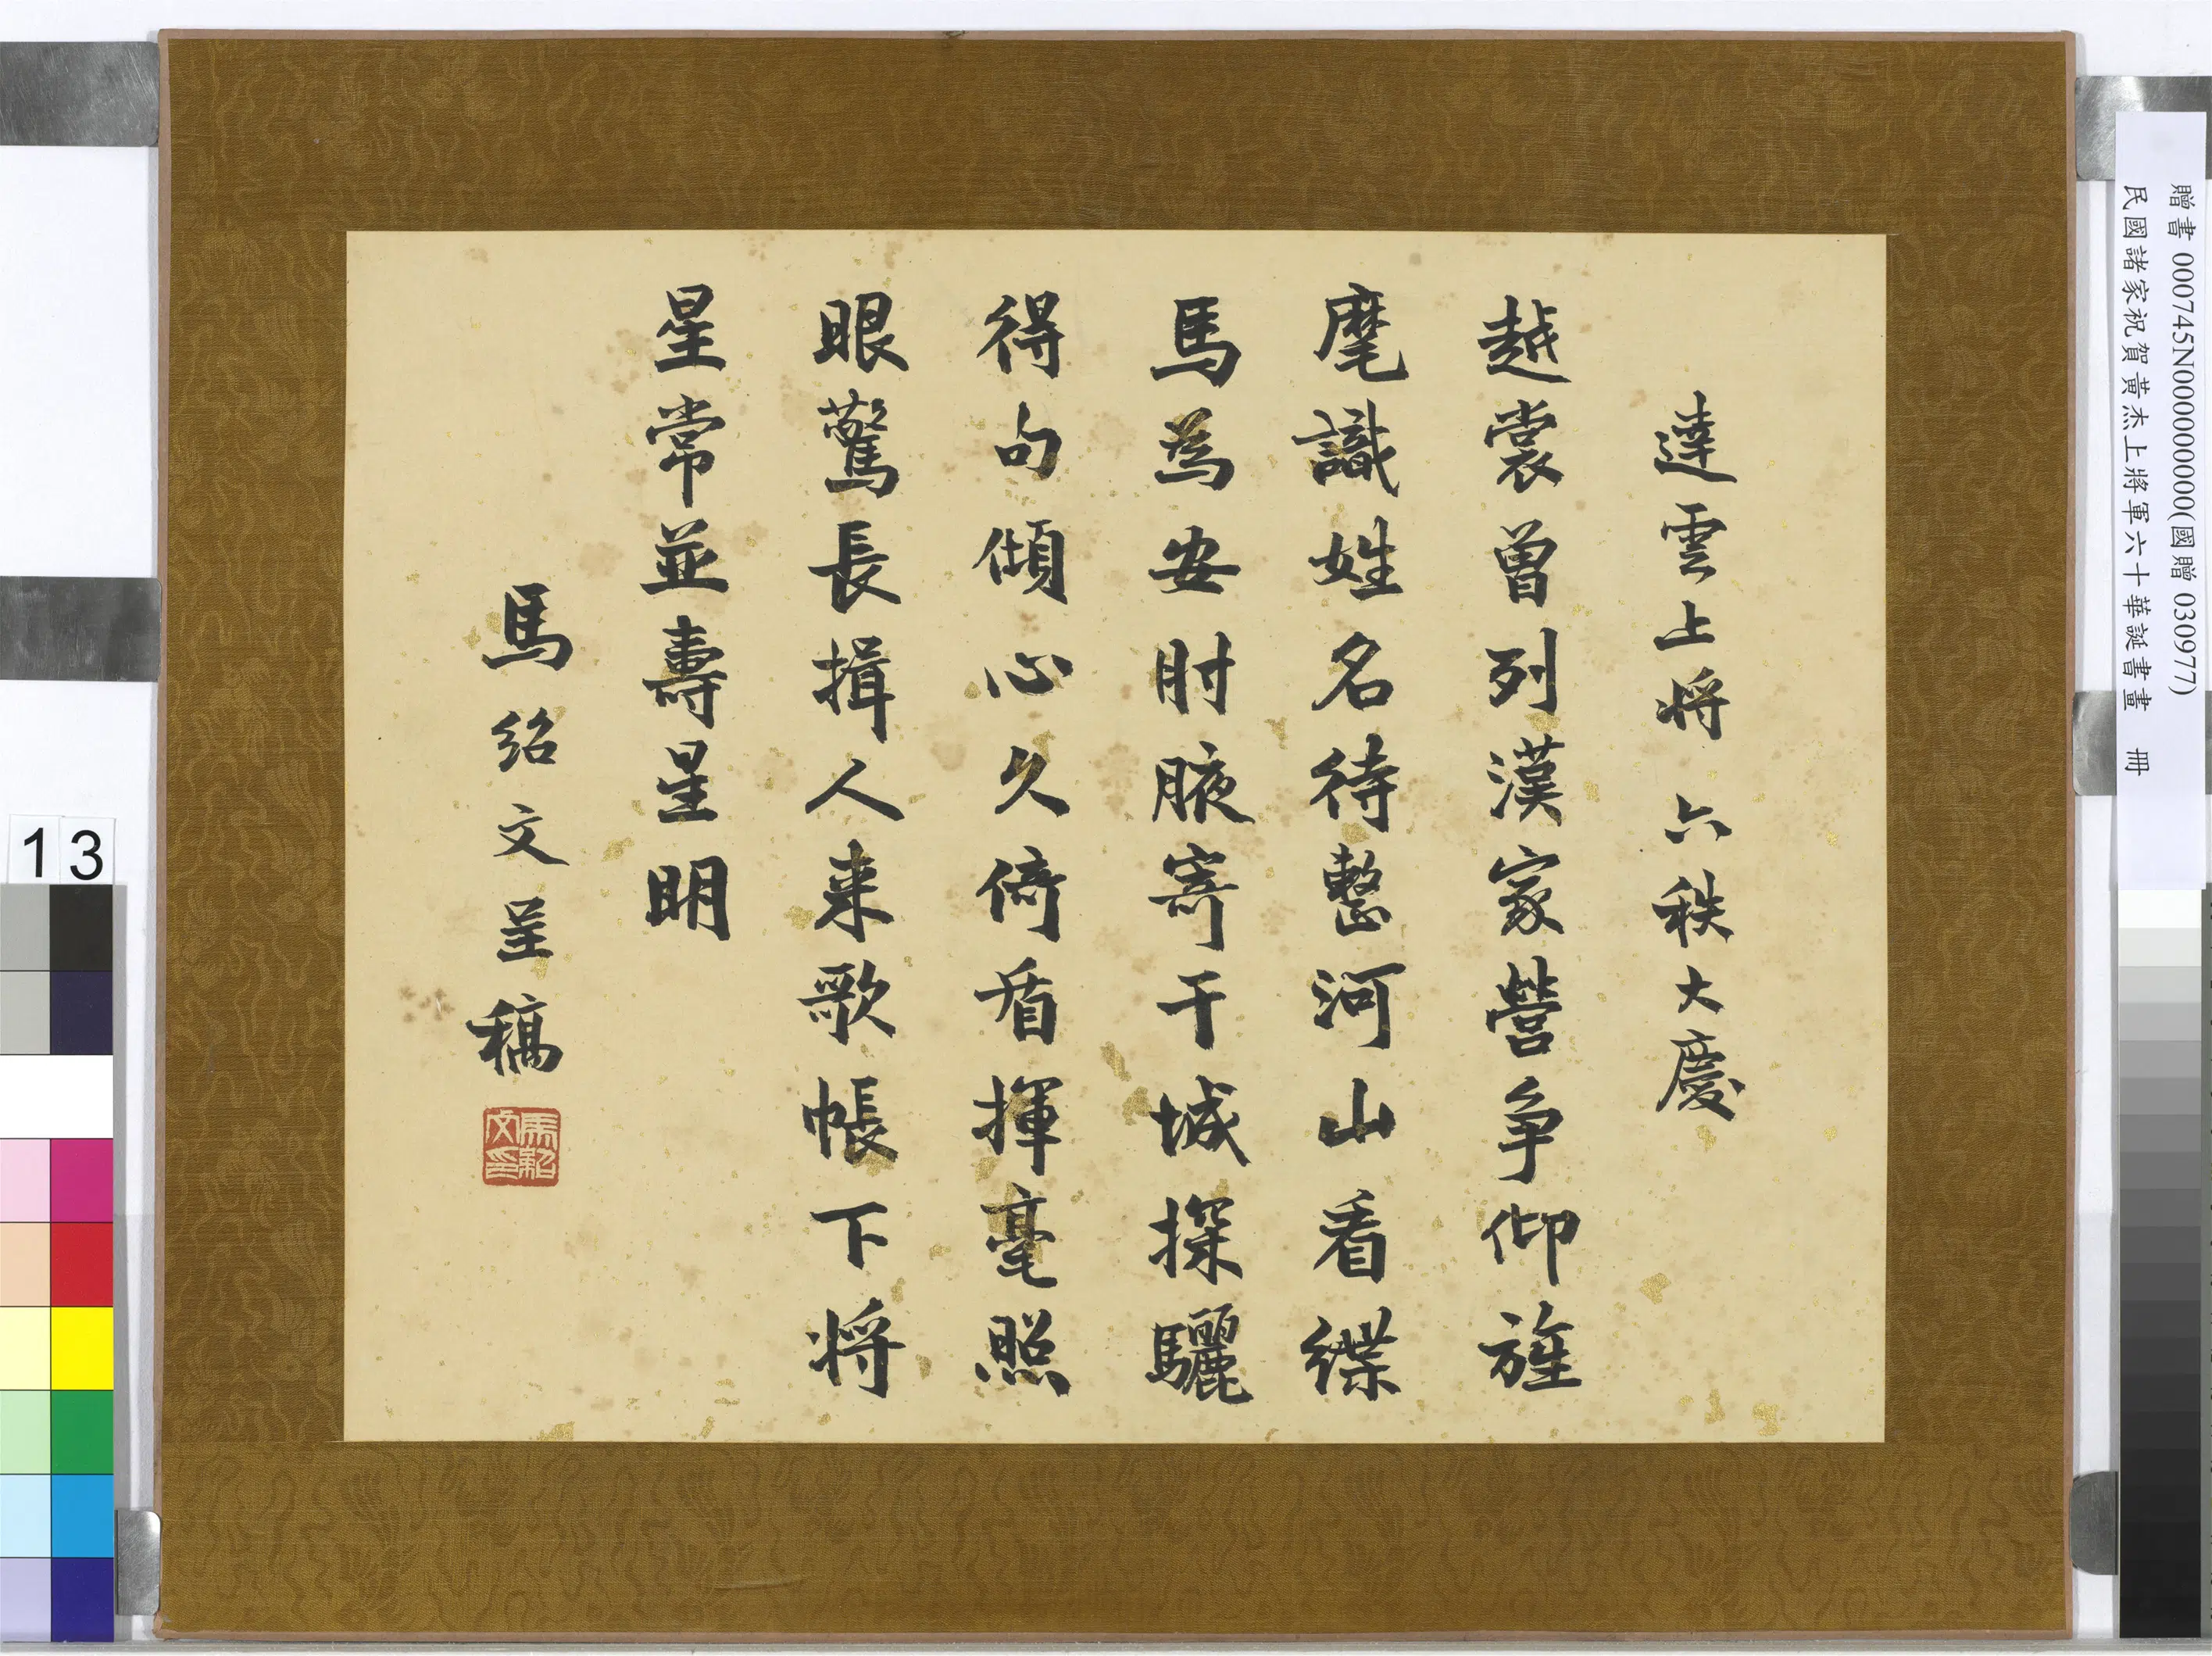 達雲上將 六秩大慶
越裳曾列漢家營爭仰旌
麾識姓名待整河山看緤
馬為安肘腋寄干城探驪
得句傾心久倚盾揮毫照
眼驚長揖人來歌帳下將
星常並壽星明
馬紹文呈稿
馬紹文印
贈書 000745N000000000(國贈 030977)
民國諸家祝賀黃杰上將軍六十華誕書畫 冊
13